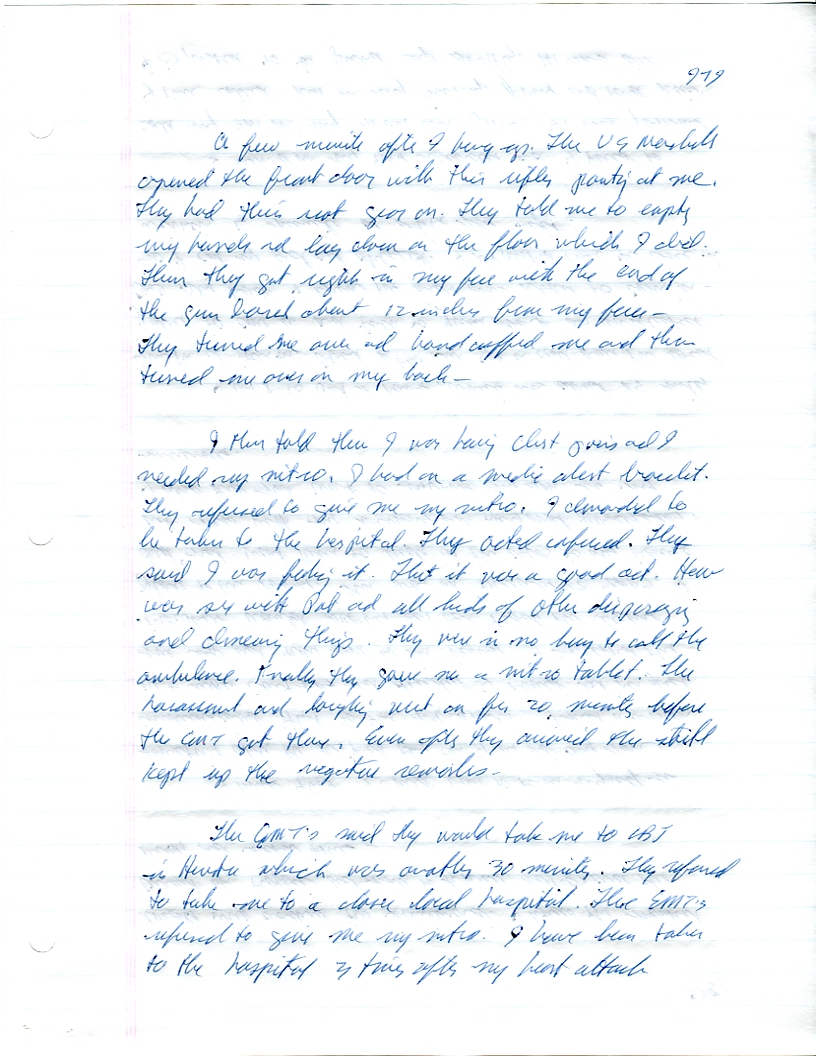 979
A few minute after I hung up. The US Marshalls
opened the front door with their rifles pointing at me.
They had their riot gear on. They told me to empty
my hands nd lay down on the floor which I did.
Then they got right in my face with the end of
the gun barrel about 12 inches from my face -
They turned me over ad handcuffed me ad then
turned me over on my back -
I then told them I was having chest pains ad I
needed my nitro. I had on a medic alert bracelet.
They refused to give me my nitro. I demanded to
be taken to the hospital. They acted confused. They
said I was faking it. That it was a good act. How
was sex with Pat ad all kinds of other disparaging
and demeaning things. They were in no hurry to call the
ambulance. Finally they gave me a nitro tablet. The
harassment and laughing went on for 20 minutes before
the EMT got there. Even after they arrived the still
kept up the negative remarks -
The EMT's said they would take me to
in which was another 30 minutes. They refused
to take me to a closer local hospital. The EMT's
refused to give me my nitro. I have been taken
to the hospital 3 times after my heart attack